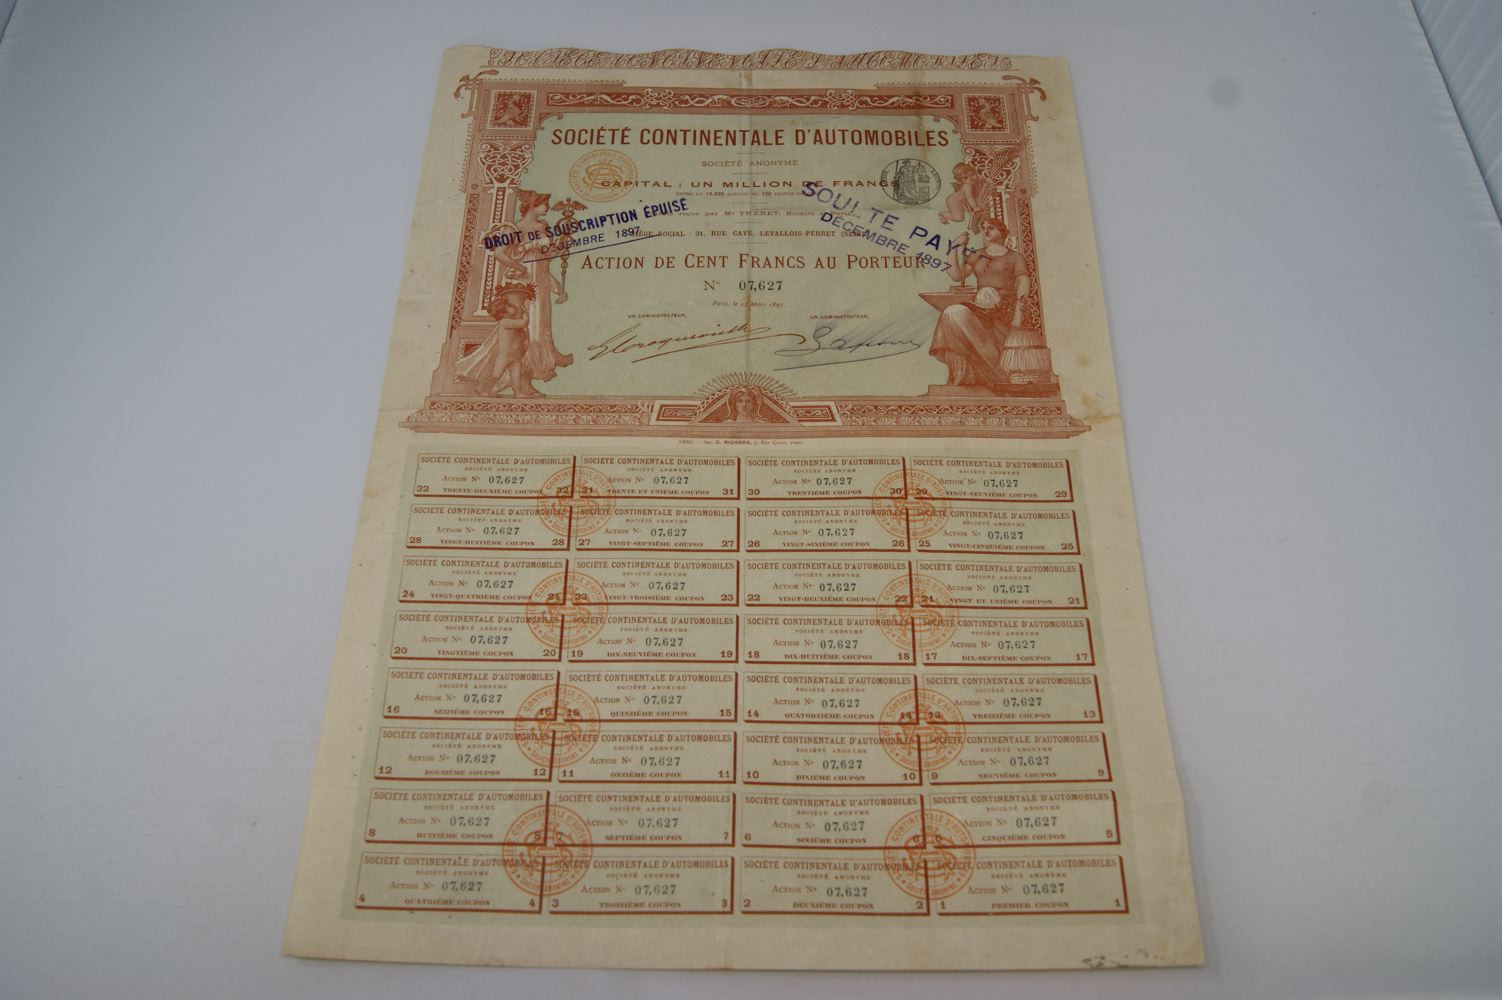 SOCIÉTÉ CONTINENTALE D'AUTOMOBILES
SOCIÉTÉ ANONYME
CAPITAL : UN MILLION DE FRANCS
reçus par Me THÉRET, Notaire
SIÈGE SOCIAL : 31, RUE CAVÉ, LEVALLOIS-PERRET
DROIT DE SOUSCRIPTION ÉPUISÉ
DÉCEMBRE 1897
SOULTE PAYÉE
DÉCEMBRE 1897
ACTION DE CENT FRANCS AU PORTEUR
No 07,627
Paris, le Mars 1897.
UN ADMINISTRATEUR, UN ADMINISTRATEUR,
Imp. G. RICHARD,
SOCIÉTÉ CONTINENTALE D'AUTOMOBILES SOCIÉTÉ CONTINENTALE D'AUTOMOBILES SOCIÉTÉ CONTINENTALE D'AUTOMOBILES SOCIÉTÉ CONTINENTALE D'AUTOMOBILES
SOCIÉTÉ ANONYME SOCIÉTÉ ANONYME SOCIÉTÉ ANONYME SOCIÉTÉ ANONYME
ACTION No 07,627 ACTION No 07,627 ACTION No 07,627 ACTION No 07,627
32 TRENTE-DEUXIÈME COUPON 32 31 TRENTE ET UNIÈME COUPON 31 30 TRENTIÈME COUPON 30 29 VINGT-NEUVIÈME COUPON 29
SOCIÉTÉ CONTINENTALE D'AUTOMOBILES SOCIÉTÉ CONTINENTALE D'AUTOMOBILES SOCIÉTÉ CONTINENTALE D'AUTOMOBILES SOCIÉTÉ CONTINENTALE D'AUTOMOBILES
SOCIÉTÉ ANONYME SOCIÉTÉ ANONYME SOCIÉTÉ ANONYME SOCIÉTÉ ANONYME
ACTION No 07,627 ACTION No 07,627 ACTION No 07,627 ACTION No 07,627
28 VINGT-HUITIÈME COUPON 28 27 VINGT-SEPTIÈME COUPON 27 26 VINGT-SIXIÈME COUPON 26 25 VINGT-CINQUIÈME COUPON 25
SOCIÉTÉ CONTINENTALE D'AUTOMOBILES SOCIÉTÉ CONTINENTALE D'AUTOMOBILES SOCIÉTÉ CONTINENTALE D'AUTOMOBILES SOCIÉTÉ CONTINENTALE D'AUTOMOBILES
SOCIÉTÉ ANONYME SOCIÉTÉ ANONYME SOCIÉTÉ ANONYME SOCIÉTÉ ANONYME
ACTION No 07,627 ACTION No 07,627 ACTION No 07,627 ACTION No 07,627
24 VINGT-QUATRIÈME COUPON 24 23 VINGT-TROISIÈME COUPON 23 22 VINGT-DEUXIÈME COUPON 22 21 VINGT ET UNIÈME COUPON 21
SOCIÉTÉ CONTINENTALE D'AUTOMOBILES SOCIÉTÉ CONTINENTALE D'AUTOMOBILES SOCIÉTÉ CONTINENTALE D'AUTOMOBILES SOCIÉTÉ CONTINENTALE D'AUTOMOBILES
SOCIÉTÉ ANONYME SOCIÉTÉ ANONYME SOCIÉTÉ ANONYME SOCIÉTÉ ANONYME
ACTION No 07,627 ACTION No 07,627 ACTION No 07,627 ACTION No 07,627
20 VINGTIÈME COUPON 20 19 DIX-NEUVIÈME COUPON 19 18 DIX-HUITIÈME COUPON 18 17 DIX-SEPTIÈME COUPON 17
SOCIÉTÉ CONTINENTALE D'AUTOMOBILES SOCIÉTÉ CONTINENTALE D'AUTOMOBILES SOCIÉTÉ CONTINENTALE D'AUTOMOBILES SOCIÉTÉ CONTINENTALE D'AUTOMOBILES
SOCIÉTÉ ANONYME SOCIÉTÉ ANONYME SOCIÉTÉ ANONYME SOCIÉTÉ ANONYME
ACTION No 07,627 ACTION No 07,627 ACTION No 07,627 ACTION No 07,627
16 SEIZIÈME COUPON 16 15 QUINZIÈME COUPON 15 14 QUATORZIÈME COUPON 14 13 TREIZIÈME COUPON 13
SOCIÉTÉ CONTINENTALE D'AUTOMOBILES SOCIÉTÉ CONTINENTALE D'AUTOMOBILES SOCIÉTÉ CONTINENTALE D'AUTOMOBILES SOCIÉTÉ CONTINENTALE D'AUTOMOBILES
SOCIÉTÉ ANONYME SOCIÉTÉ ANONYME SOCIÉTÉ ANONYME SOCIÉTÉ ANONYME
ACTION No 07,627 ACTION No 07,627 ACTION No 07,627 ACTION No 07,627
12 DOUZIÈME COUPON 12 11 ONZIÈME COUPON 11 10 DIXIÈME COUPON 10 9 NEUVIÈME COUPON 9
SOCIÉTÉ CONTINENTALE D'AUTOMOBILES SOCIÉTÉ CONTINENTALE D'AUTOMOBILES SOCIÉTÉ CONTINENTALE D'AUTOMOBILES SOCIÉTÉ CONTINENTALE D'AUTOMOBILES
SOCIÉTÉ ANONYME SOCIÉTÉ ANONYME SOCIÉTÉ ANONYME SOCIÉTÉ ANONYME
ACTION No 07,627 ACTION No 07,627 ACTION No 07,627 ACTION No 07,627
8 HUITIÈME COUPON 8 7 SEPTIÈME COUPON 7 6 SIXIÈME COUPON 6 5 CINQUIÈME COUPON 5
SOCIÉTÉ CONTINENTALE D'AUTOMOBILES SOCIÉTÉ CONTINENTALE D'AUTOMOBILES SOCIÉTÉ CONTINENTALE D'AUTOMOBILES SOCIÉTÉ CONTINENTALE D'AUTOMOBILES
SOCIÉTÉ ANONYME SOCIÉTÉ ANONYME SOCIÉTÉ ANONYME SOCIÉTÉ ANONYME
ACTION No 07,627 ACTION No 07,627 ACTION No 07,627 ACTION No 07,627
4 QUATRIÈME COUPON 4 3 TROISIÈME COUPON 3 2 DEUXIÈME COUPON 2 1 PREMIER COUPON 1